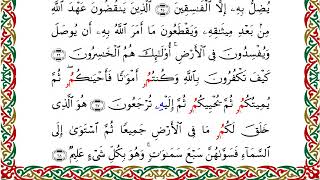 يُضِلُّ بِهِۦٓ إِلَّا ٱلْفَٰسِقِينَ ٢٦ ٱلَّذِينَ يَنقُضُونَ عَهْدَ ٱللَّهِ
مِنۢ بَعْدِ مِيثَٰقِهِۦ وَيَقْطَعُونَ مَآ أَمَرَ ٱللَّهُ بِهِۦٓ أَن يُوصَلَ
وَيُفْسِدُونَ فِى ٱلْأَرْضِ أُو۟لَٰٓئِكَ هُمُ ٱلْخَٰسِرُونَ ٢٧
كَيْفَ تَكْفُرُونَ بِٱللَّهِ وَكُنتُمُۥٓ أَمْوَٰتًا فَأَحْيَٰكُمُۥ ثُمَّ
يُمِيتُكُمُۥ ثُمَّ يُحْيِيكُمُۥ ثُمَّ إِلَيْهِۦ تُرْجَعُونَ ٢٨ هُوَ ٱلَّذِى
خَلَقَ لَكُمُۥ مَا فِى ٱلْأَرْضِ جَمِيعًا ثُمَّ ٱسْتَوَىٰٓ إِلَى
ٱلسَّمَآءِ فَسَوَّىٰهُنَّ سَبْعَ سَمَٰوَٰتٍ ۚ وَهْوَ بِكُلِّ شَىْءٍ عَلِيمٌ ٢٩